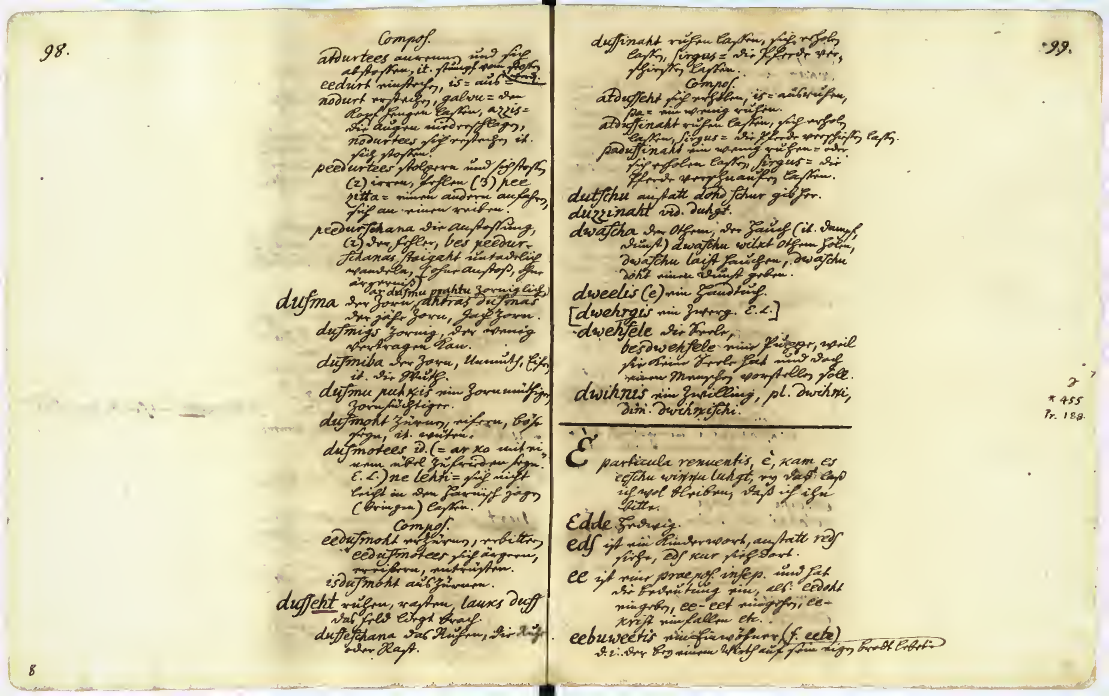 98.
Compos.
atdurtees anrennen und sich
abstossen, it. stumpf vom stossen
werden.
eedurt einstechen, is= aus=
nodurt erstechen, galwu= den
Kopf hengen lassen, azzis=
die Augen niederschlagen,
nodurtees sich erstechen it.
sich stossen.
peedurtees stolpern und sich stossen
(2) irren, fehlen (3) pee
zitta= einen andern anfahren,
sich an einen reiben.
peedurschana die Anstossung,
(2) der Fehler, bes peedur-
schanas staigaht untadelich
wandeln, (ohne Anstoss,
ärgerniß)
ar dusmu prahtu zorniglich,
dusma der Zorn, ahtras dusmas
der jähe Zorn, Jachzorn.
dusmigs zornig, der wenig
vertragen kan.
dusmiba der Zorn, Unmuth, Eifer
it. die Wuth.
dusmu puhkis ein Zornmüthiger
Zornsüchtiger.
dusmoht zürnen, eifern, böse
seyn, it. wüten.
dusmotees id. (= ar ko mit ei-
nem übel zufrieden seyn.
E. L.) ne lehti= sich nicht
leicht in den Harnisch jagen
(bringen) lassen.
Compos.
eedusmoht erzürnen, erbittern
eedusmotees sich ärgern,
ereifern, entrüsten.
isdusmoht auszürnen.
dusseht ruhen, rasten, lauks duss
das Feld liegt brach.
dusseschana das Ruhen, die Ruhe
oder Rast.
8
99.
dussinaht ruhen lassen, sich erholen
lassen, sirgus= die Pferde ver-
schnaufen lassen.
Compos.
atdusseht sich erholen, is= ausruhen,
pa= ein wenig ruhen.
atdussinaht ruhen lassen, sich erholen
lassen, sirgus= die Pferde verschnaufen lassen.
padussinaht ein wenig ruhen= oder
sich erholen lassen, sirgus= die
Pferde verschnaufen lassen.
dutschu anstatt dohd schur gib her.
duzzinaht vid. duhzt.
dwascha der Othem, der Hauch (it. Dampf,
Dunst) dwaschu wilkt Othem holen,
dwaschu laist hauchen, dwaschu
doht einen Dunst geben.
dweelis (e) ein Handtuch.
[dwehrgis ein Zwerg. E. L.]
dwehsele die Seele,
besdwehsele eine Puppe, weil
sie keine Seele hat und doch
einen Menschen vorstellen soll.
dwihnis ein Zwilling, pl. dwihni,
dim. dwihnischi.
* 455
Fr. 188.
È
particula renuentis, è, kam es
eeschu winnu luhgt, ey daß laß
ich wol bleiben, daß ich ihn
bitte.
Edde Hedwig.
eds ist ein Kinderwort, anstatt reds
siehe, eds kur sieh dort.
ee ist eine praepos. insep. und hat
die Bedeutung ein, als eedoht
eingeben, ee-eet eingehen, ee-
krist einfallen etc.
eebuweetis ein Einwohner (f. eete)
d. i. der bey einem Wirth auf sein eigen brodt lebet